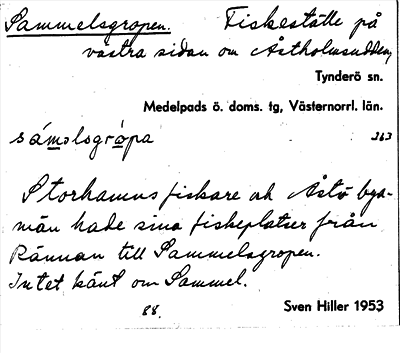 Sammelsgropen. Fiskeställe på
västra sidan om Åstholmsudden,
Tynderö sn.
Medelpads ö. doms. tg, Västernorrl. län.
sáməlsgrò̱pa 363
Storhamns fiskare ock Åstö bya-
män hade sina fiskeplatser från
Rännan till Sammelsgropen.
Intet känt om Sammel.
88. Sven Hiller 1953